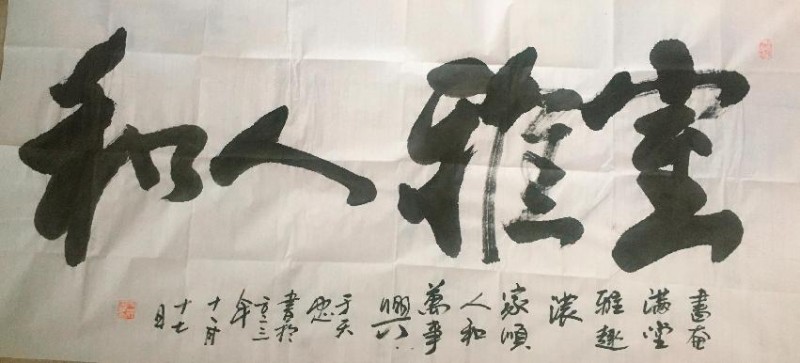 室雅人和
書香
满堂
雅趣
濃
家順
人和
萬事
興
于天
書於
年
十一月
十七
日